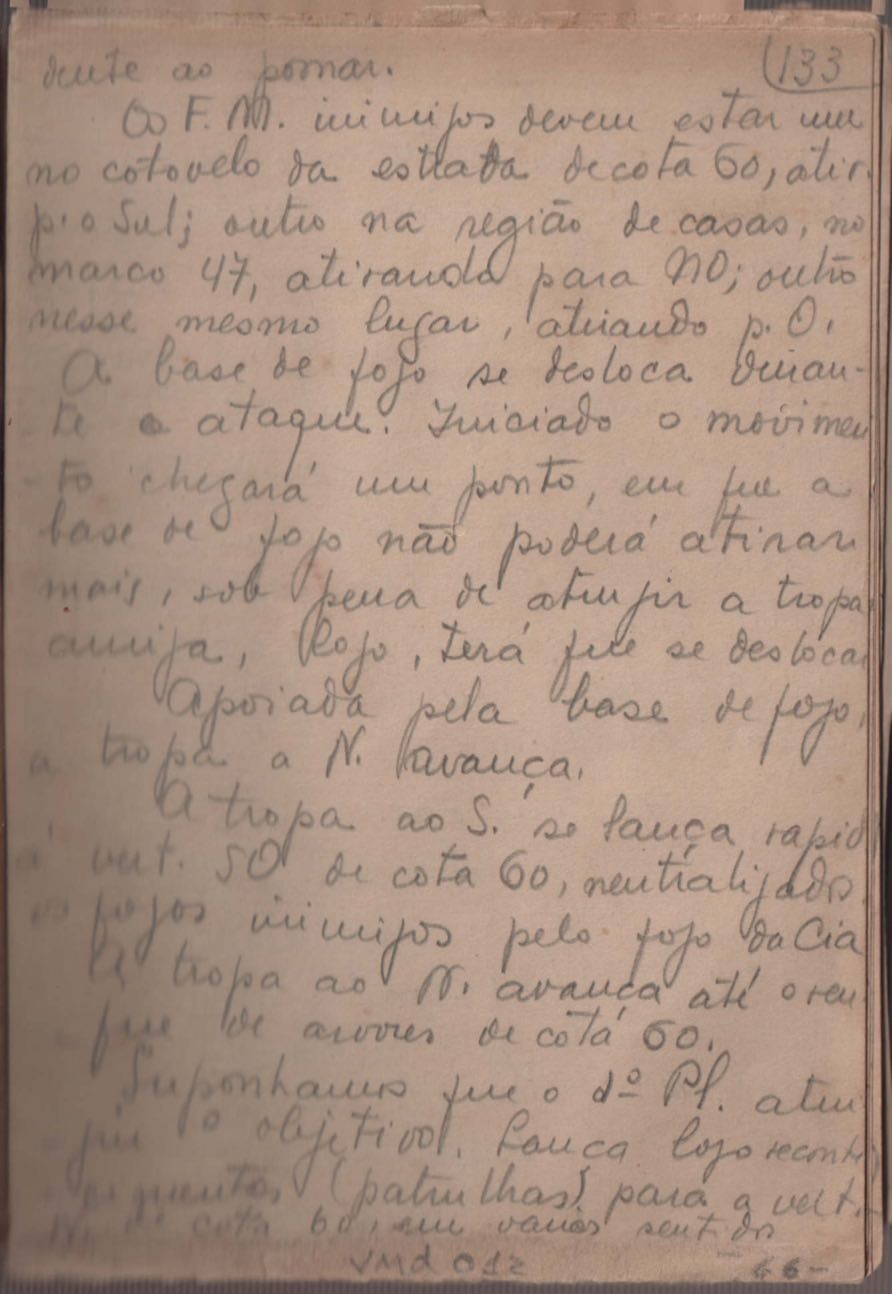 dente ao pomar.
133
Os F.M. inimigos devem estar um
no cotovelo da estrada de cota 60, atir.
p. o Sul; outro na região de casas, no
marco 47, atirando para NO; outro
nesse mesmo lugar, atirando p. O.
A base de fogo se desloca duran-
te o ataque. Iniciado o movimen
to chegará um ponto, em que a
base de fogo não poderá atirar
mais, sob pena de atingir a tropa
amiga, logo, terá que se deslocar
Apoiada pela base de fogo,
a tropa a N. avança.
A tropa ao S. se lança rapid
á vert. SO de cota 60, neutralizados
os fogos inimigos pelo fogo da Cia
A tropa ao N. avança até o ren
que de arvores de cota 60.
Suponhamos que o 1º Pl. atin
giu o objetivo. Lança logo reconhe
(patrulhas) para a vert.
N. de cota 60, em varios sentidos
VMd 012
66-